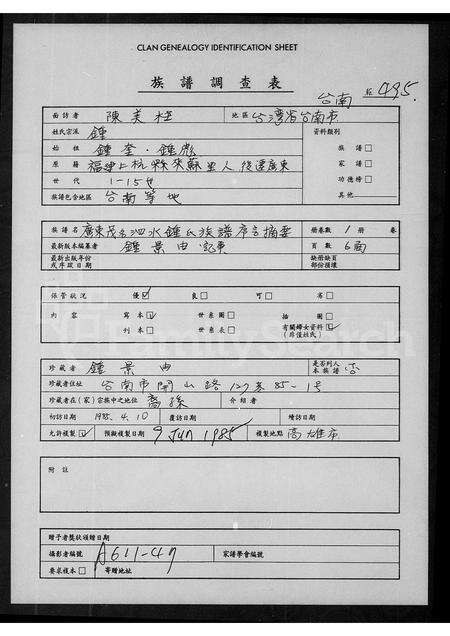 CLAN GENEALOGY IDENTIFICATION SHEET
族譜調查表
台南 495.
面訪者 陳美桂 地區 台灣省台南市
姓氏宗派 鍾 資料類別
始祖 鍾奎.鍾 族譜
原籍 福建上杭縣來蘇里人,後遷廣東 家譜
世代 1-15世 功德榜
族譜包含地區 台南等地 其他
族譜名 廣東茂名泗水鍾氏族譜序言摘要 冊卷數 1 冊 卷
最新版本編纂者 鍾景由 記東 頁數 6面
最新出版年份或序跋日期 缺冊缺頁部份損壞
保管狀況 優 良 可 劣
內容 寫本 世系圖 插圖
刊本 世系表 有關婦女資料(非僅姓氏)
珍藏者 鍾景由 是否列入本族譜 否
珍藏者住址 台南市開山路127巷85-15
珍藏者在(家)宗族中之地位 裔孫 介紹者
初訪日期 1985.4.10 覆訪日期 續訪日期
允許複製 預擬複製日期 9 Jun 1985 複製地點 高雄市
附註
贈予者獎狀頒贈日期
攝影者編號 A611-47 家譜學會編號
要求複本 寄贈地址
FamilySearch